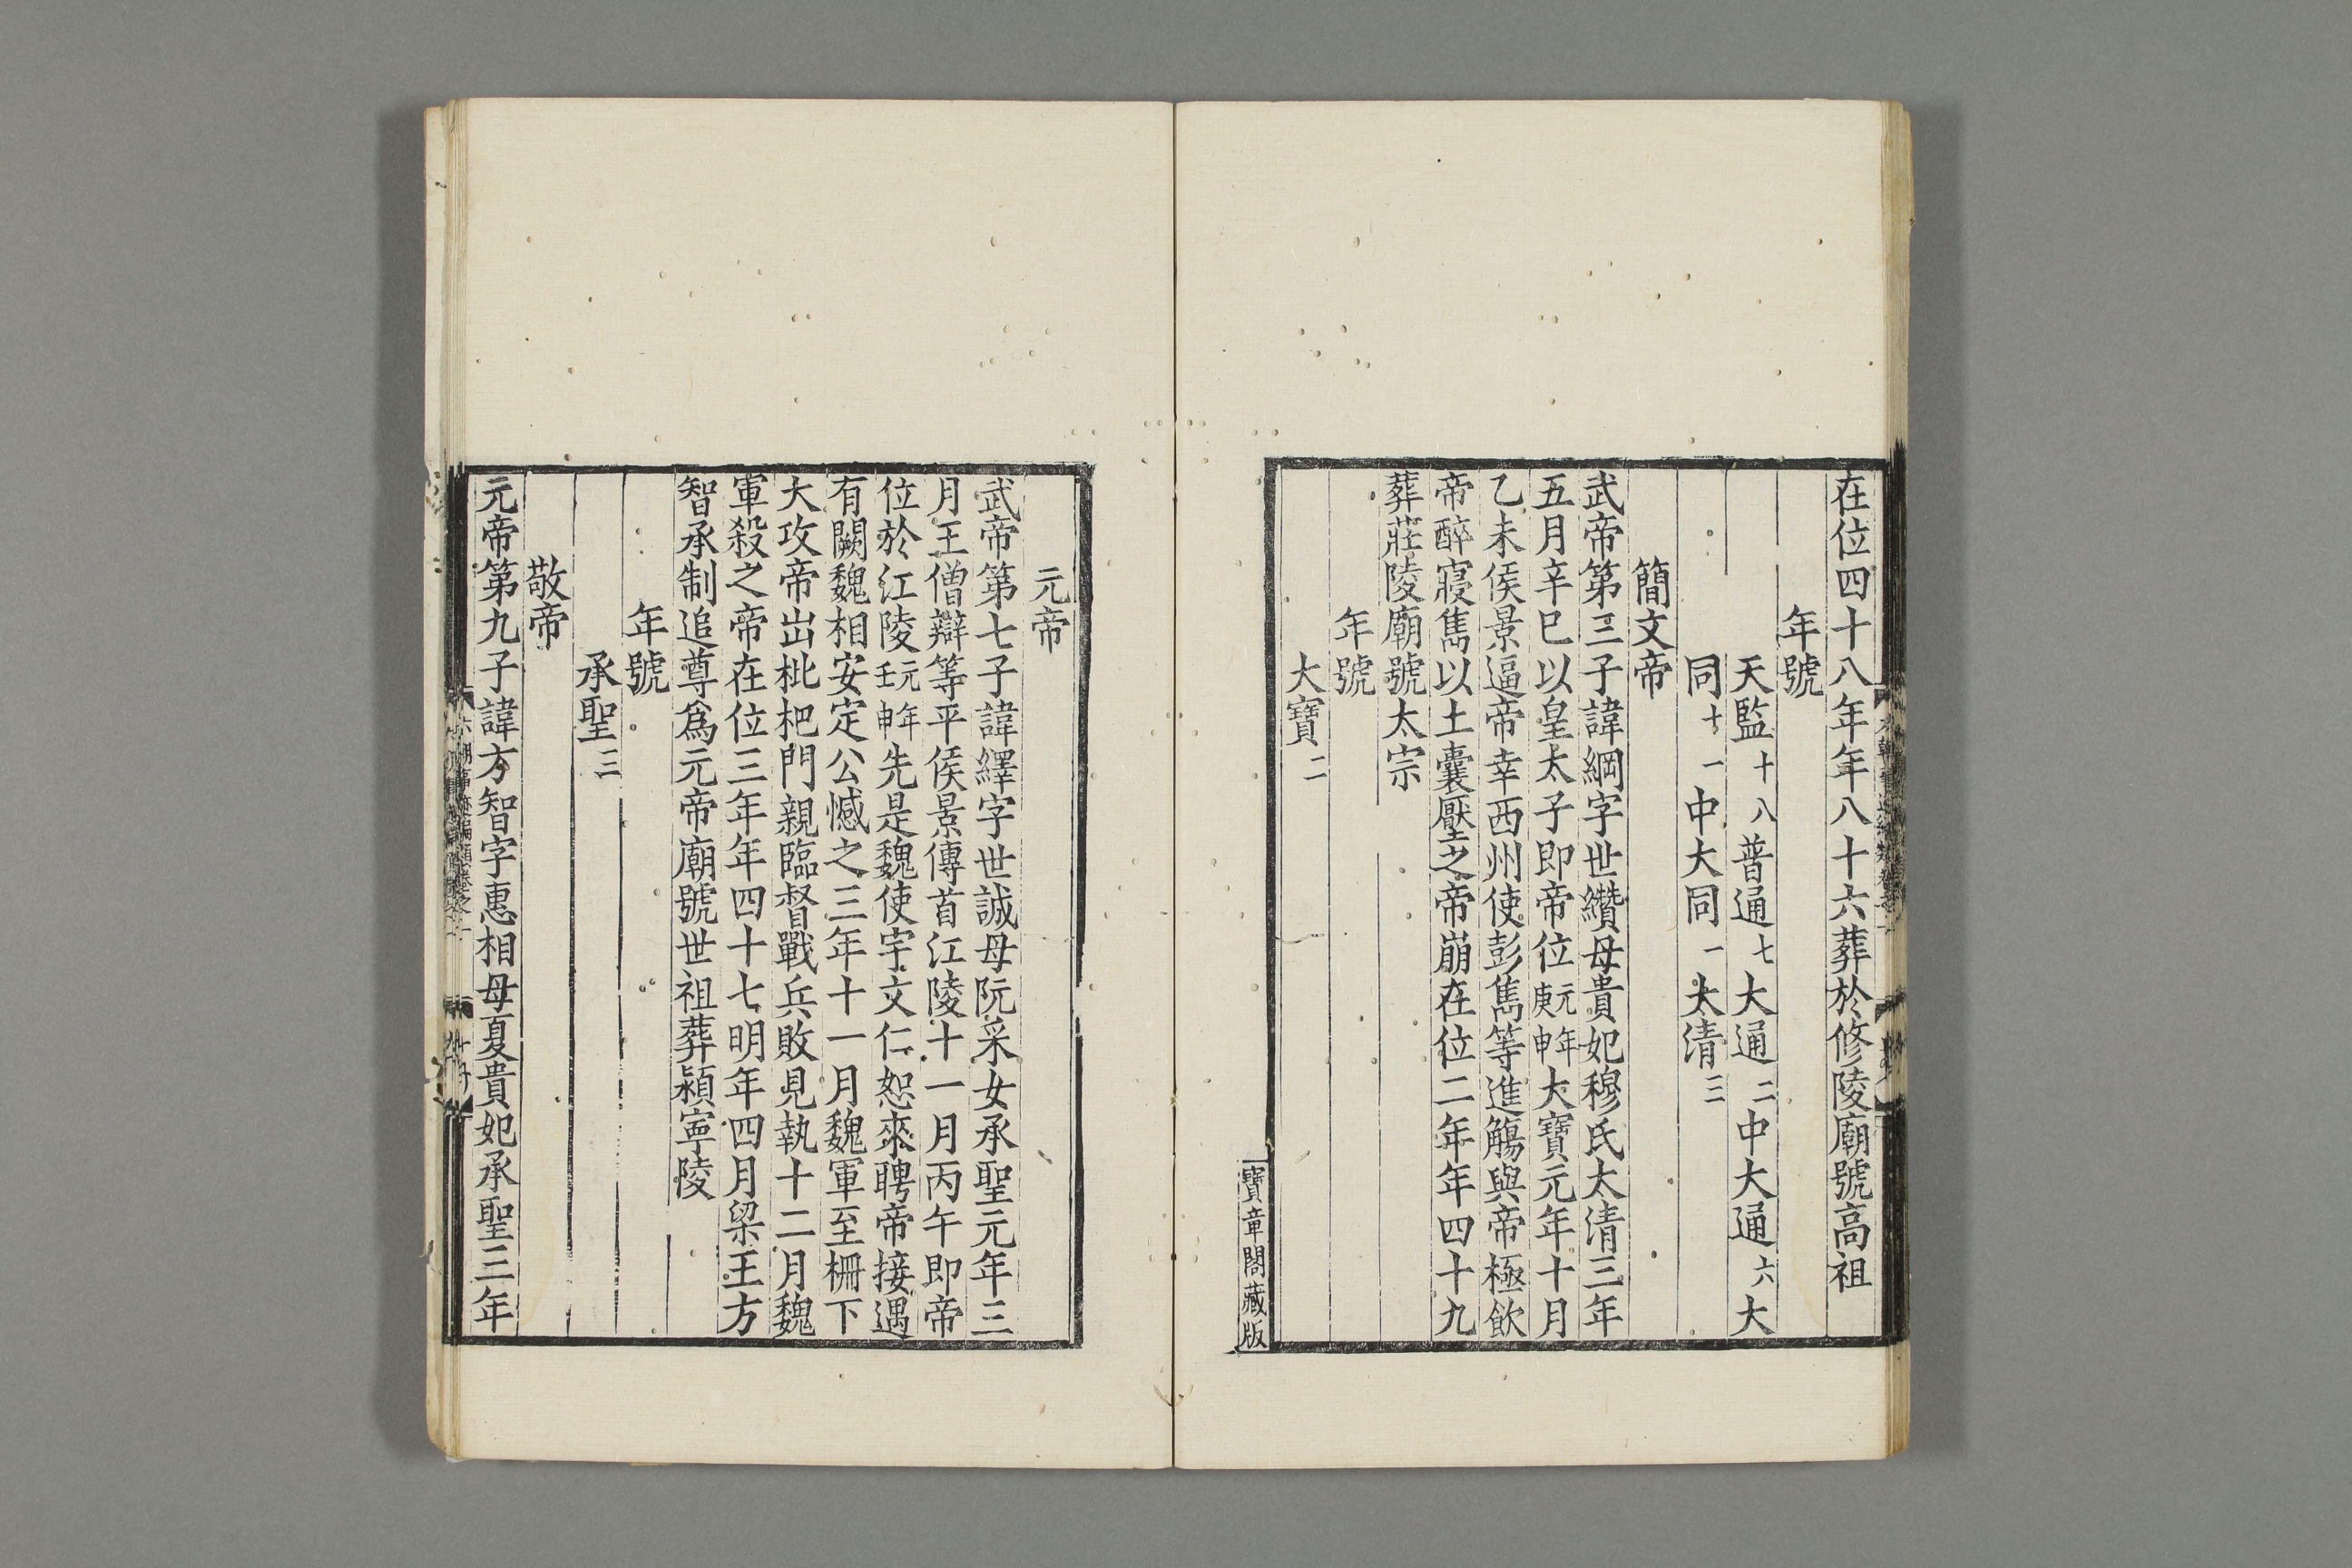 在位四十八年年八十六葬於修陵廟號高祖
年號
天監十八普通七大通二中大通六大
同十一中大同一太清三
簡文帝
武帝第三子諱綱字世纘母貴妃穆氏太清三年
五月辛巳以皇太子即帝位元年庚申大寶元年十月
乙未侯景逼帝幸西州使彭雋等進觴與帝極飲
帝醉寢雋以土囊壓之帝崩在位二年年四十九
葬莊陵廟號太宗
年號
大寶二
寶章閣藏版
元帝
武帝第七子諱繹字世誠母阮采女承聖元年三
月王僧辯等平侯景傳首江陵十一月丙午即帝
位於江陵元年壬申先是魏使宇文仁恕來聘帝接遇
有闕魏相安定公憾之三年十一月魏軍至柵下
大攻帝出枇杷門親臨督戰兵敗見執十二月魏
軍殺之帝在位三年年四十七明年四月梁王方
智承制追尊爲元帝廟號世祖葬潁寧陵
年號
承聖三
敬帝
元帝第九子諱方智字惠相母夏貴妃承聖三年